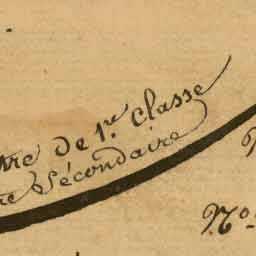 tre de 1re Classe
re Sécondaire
No.